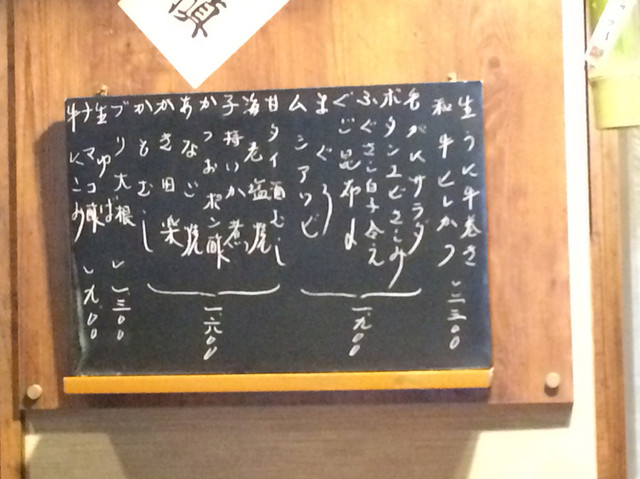 生うに牛巻き
和牛ヒレかつ
二三〇〇
毛がにサラダ
ボタンエビさしみ
ふぐさし白子合え
昆布〆
まぐろ
ムシアワビ
一九〇〇
甘タイ酒むし
海老塩焼
子持いか煮
かつおポン酢
あなご焼
かき田楽
かもむし
一六〇〇
ブリ大根
一三〇〇
生ゆば
ナマコ酢
牛にこみ
九〇〇